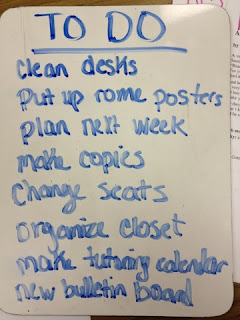 TO DO
clean desks
put up rome posters
plan next week
make copies
change seats
organize closet
make tutoring calendar
new bulletin board